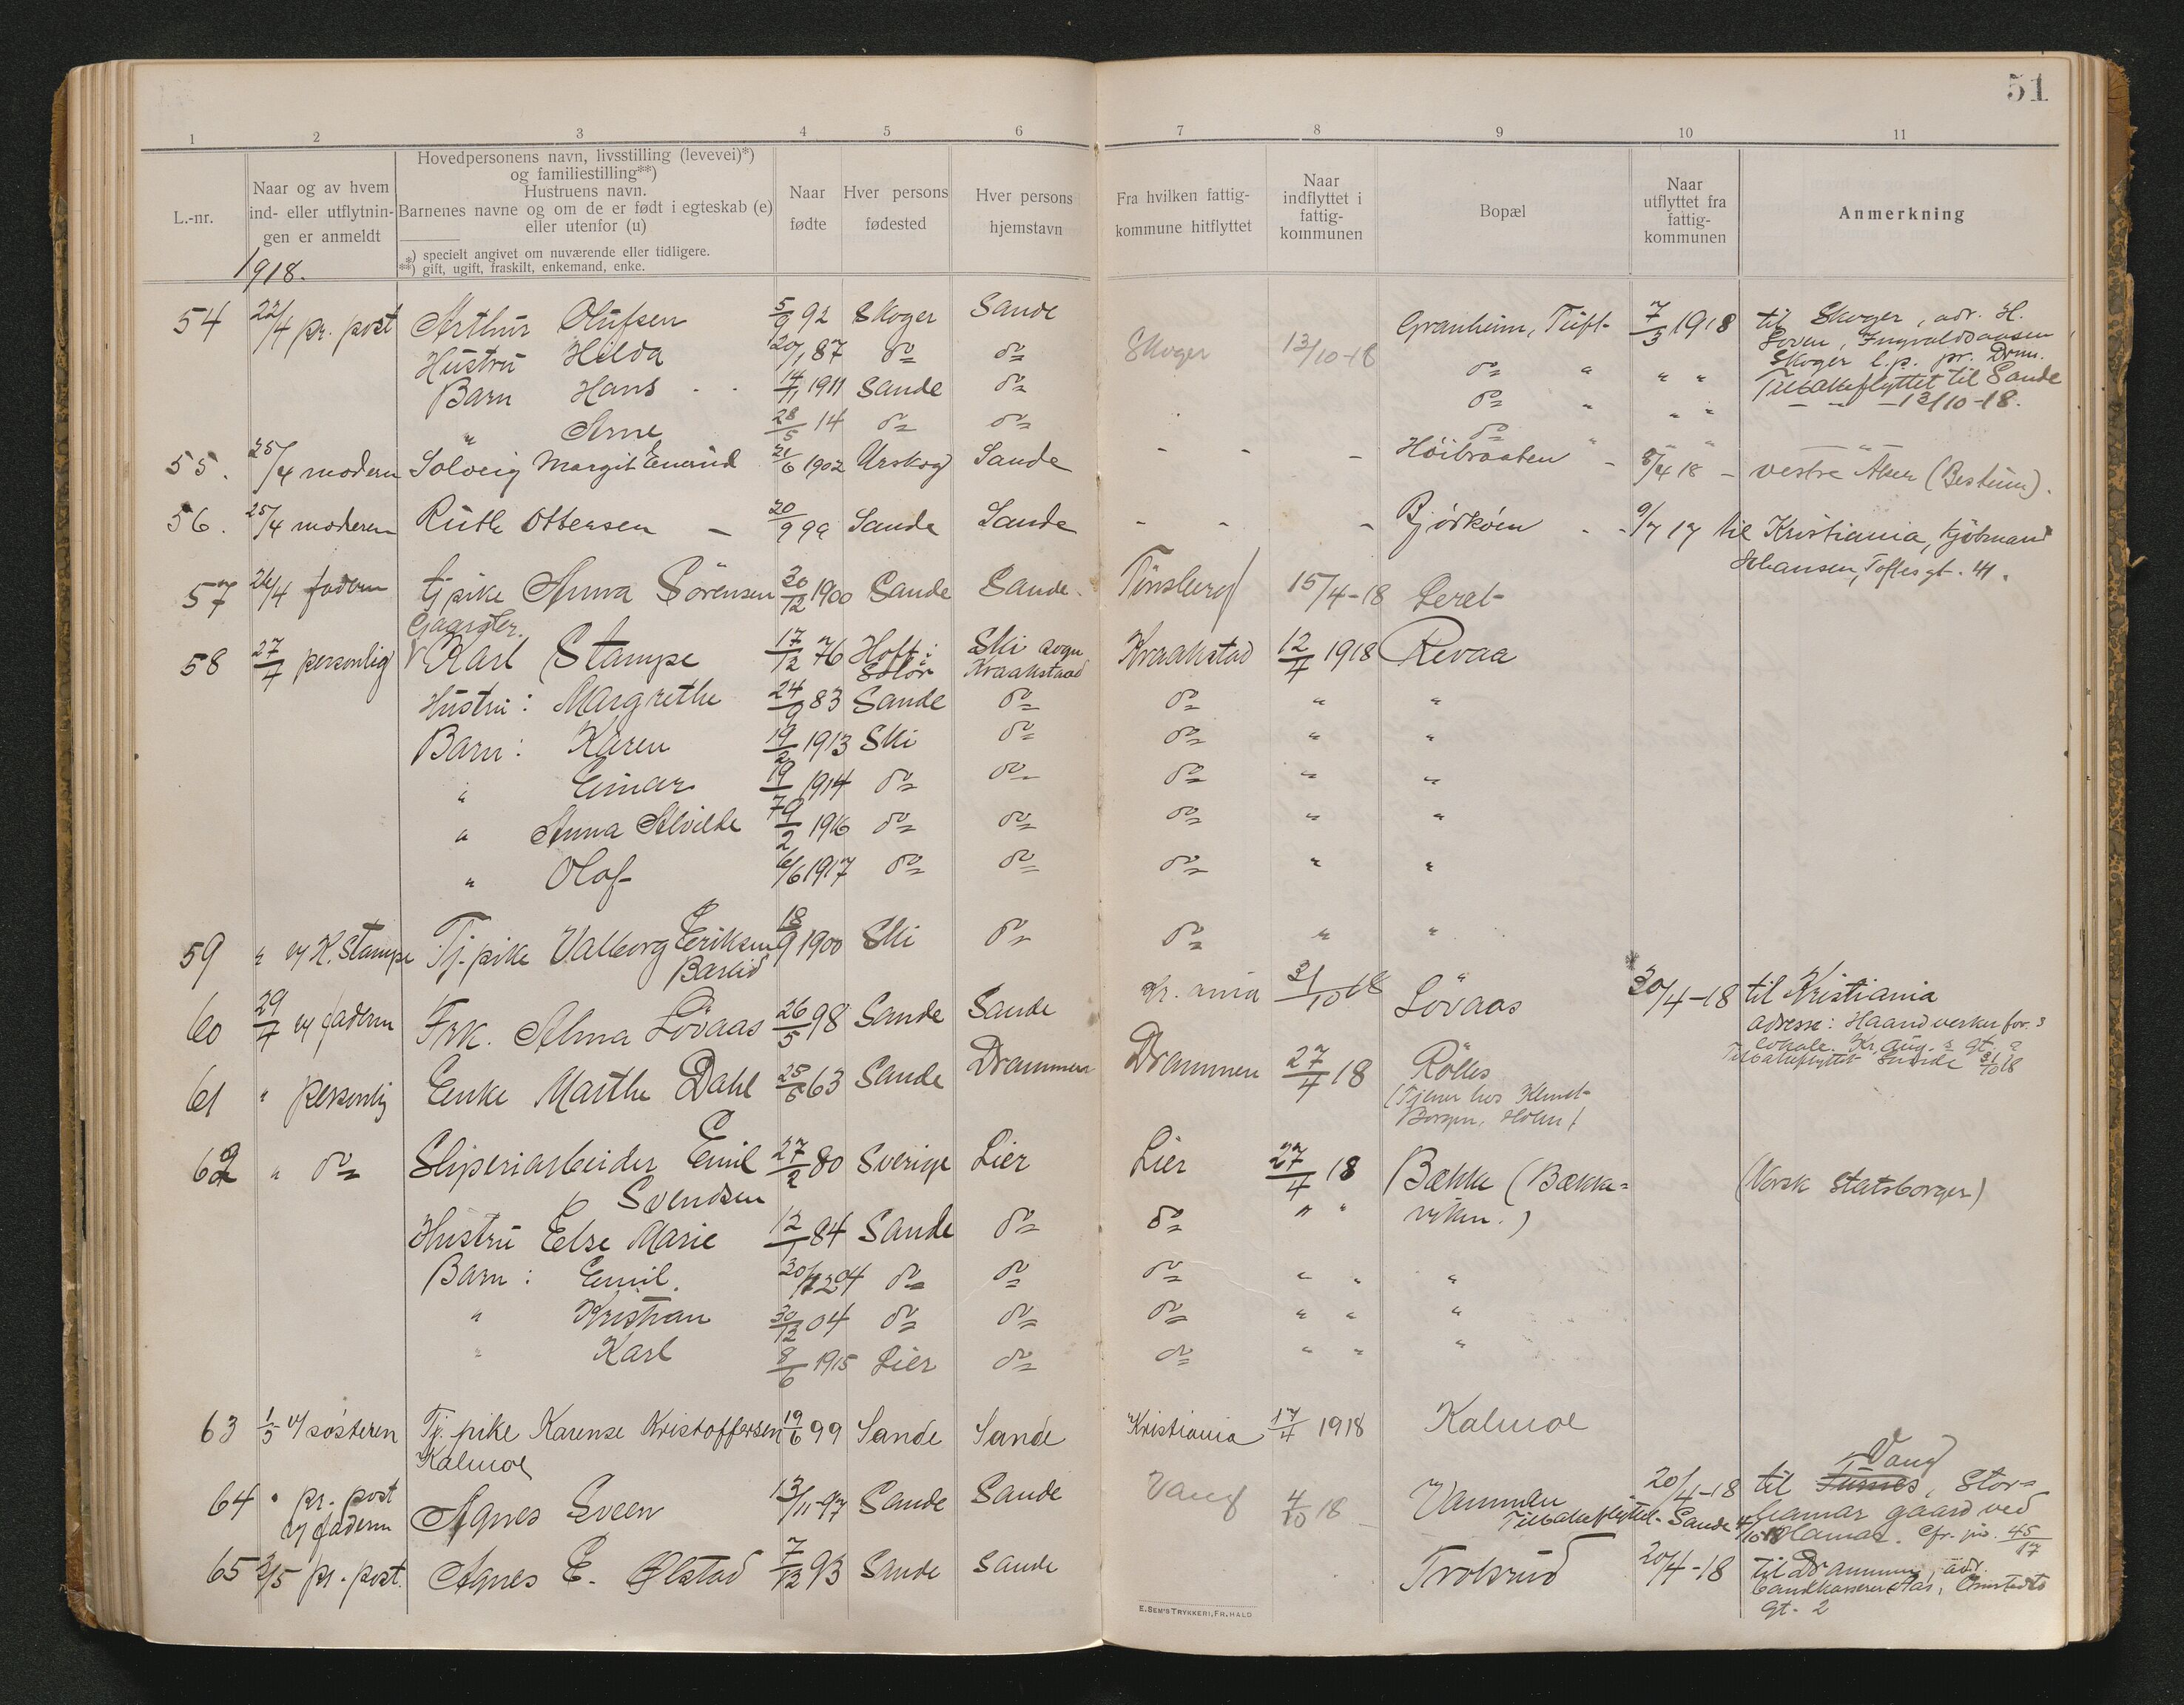 51
1 2 3 4 5 6 7 8 9 10 11
L.-nr.
Naar og av hvem
ind- eller utflytnin-
gen er anmeldt
Hovedpersonens navn, livsstilling (levevei)*)
og familiestilling**)
Hustruens navn.
Barnenes navne og om de er født i egteskab (e)
eller utenfor (u)
*) specielt angivet om nuværende eller tidligere.
**) gift, ugift, fraskilt, enkemand, enke.
Naar
fødte
Hver persons
fødested
Hver persons
hjemstavn
Fra hvilken fattig-
kommune hitflyttet
Naar
indflyttet i
fattig-
kommunen
Bopæl
Naar
utflyttet fra
fattig-
kommunen
Anmerkning
1918.
54 22/4 pr. post Arthur Olufsen 5/9 92 Skoger Sande Granheim, Tuft- 7/3 1918 til Skoger, adr. H.
Hustru Hilda 20/1 87 do do Skoger 13/10-18 do " " " Loven, Ingvaldsaasen
Skoger l.p. pr. Drm.
Barn Hans 14/1 1911 Sande do do " " " Tilbakeflyttet til Sande
" Arne 28/5 14 do do do " " " 13/10-18.
55. 25/4 modern Solveig Margit Enerud 21/6 1902 Urskog Sande - - - Høibraaten - 8/4 18 - vestre Aker (Bestum).
56. 25/4 moderen Ruth Ottersen - 20/9 99 Sande Sande - - - Bjørkøen - - 9/7 17 til Kristiania, kjøbmand
Johansen, Toftesgt. 41.
57 26/4 fadern tj pike Anna Sørensen 20/12 1900 Sande Sande Tønsberg 15/4-18 Leret
Gaardbr.
58 27/4 personlig Karl Stampe 17/12 76 Hoff i Solør Ski sogn Kraakstad Kraakstad 12/4 1918 Revaa
Hustru: Margrethe 24/9 83 Sande do do " "
Barn: Karen 19/2 1913 Ski do do " "
" Einar 19/7 1914 do do do " "
" Anna Alvilde 9/2 1916 do do do " "
" Olaf 6/6 1917 do do do " "
59 " v/ K. Stampe Tj. pike Valborg Eriksen 18/9 1900 Ski do do " "
Barlid
60 29/4 v/ fadern Frk. Alma Løvaas 26/5 98 Sande Sande Kr. ania 31/10 18 Løvaas 30/4-18 til Kristiania
adresse: Haandverkerfor.s
lokale. Kr. Aug.s gt. 2
Tilbakeflyttet Sande 31/10 18
61 " personlig Enke Marthe Dahl 25/8 63 Sande Drammen Drammen 27/4 18 Rølles
(Tjener hos Klemet
Borgen, Holm)
62 " do Sliperiarbeider Emil 27/2 80 Sverige Lier Lier 27/4 18 Bække (Bække- (Norsk Statsborger)
Svendsen
Hustru Else Marie 12/1 84 Sande do do " " viken.)
Barn: Emil 30/12 04 do do do " " "
" Kristian 30/12 04 do do do " " "
" Karl 8/6 1915 Lier do do " " "
63 1/5 v/ søsteren Tj. pike Karense Kristoffersen 19/6 99 Sande Sande Kristiania 17/4 1918 Kalmoe
Kalmoe
64 " pr. post v/ fadern Agnes Sveen 13/11-97 Sande Sande Vang 4/10 18 - Vammen 20/4-18 til Furnes Vang, Stor-
Tilbakeflyttet Sande 4/10 18 hamar gaard ved
Hamar. Cfr. jio. 45/17
65 2/5 pr. post. Agnes E. Ølstad 7/12 93 Sande Sande Trolsrud 20/4-18 til Drammen, adr.
Omsteds
gt. 2
E. SEM'S TRYKKERI, FR. HALD